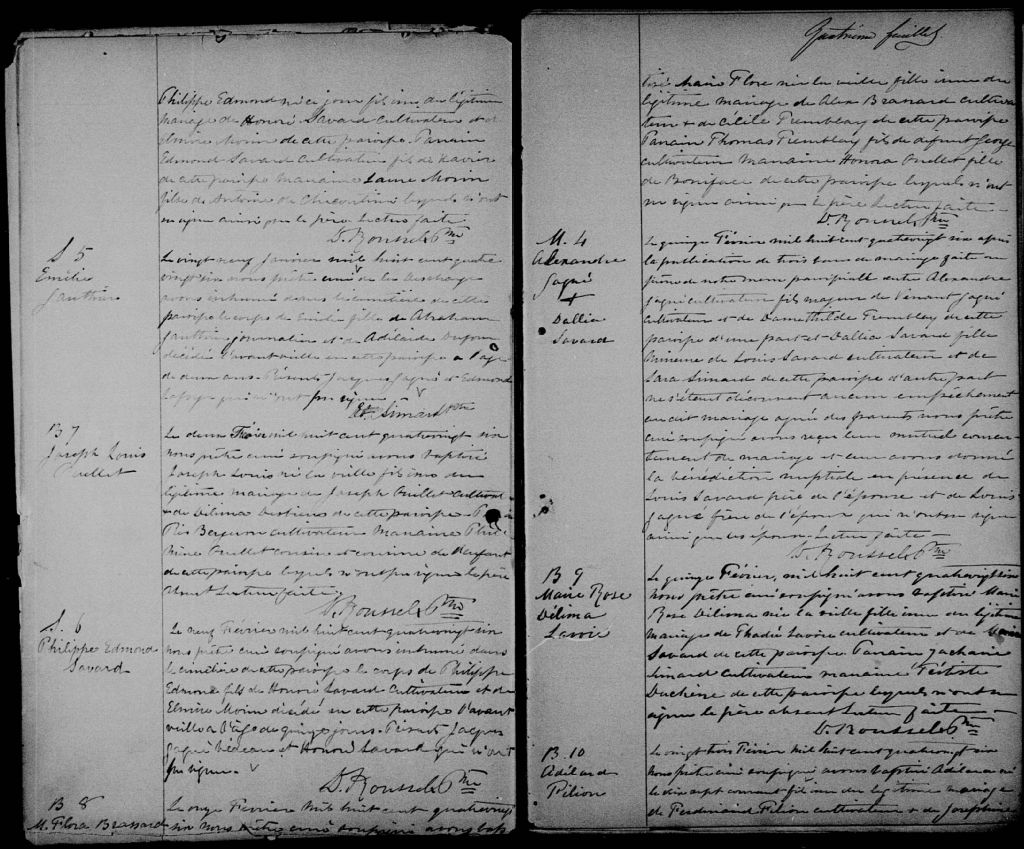 Philippe Edmond né ce jour fils du légitime
mariage de Honoré Savard cultivateur et d'
Elmire Morin de cette paroisse Parrain
Edmond Savard cultivateur fils de Xavier
de cette paroisse Marraine Laure Morin
fille de Antoine de Chicoutimi lesquels n'ont
su signer ainsi que le père Lecture faite
D. Roussel Ptre
S 5
Emilie
Gauthier
Le vingt neuf Janvier mil huit cent quatre
vingt six nous prêtre curé de
avons inhumé dans le cimetière de cette
paroisse le corps de Emilie fille de Abraham
Gauthier journalier et de Adélaide Dufour
décédée l'avant veille en cette paroisse à l'age
de deux ans. Présents Jacques Gagné et Edmond
qui n'ont pu signer
Simard Ptre
B 7
Joseph Louis
Ouellet
Le deux Février mil huit cent quatrevingt six
nous prêtre curé soussigné avons baptisé
Joseph Louis né la veille fils du
légitime mariage de Joseph Ouellet cultivat
& de Délima de cette paroisse
Pié Bergeron cultivateur Marraine Phi-
mène Ouellet cousin et cousine de l'enfant
de cette paroisse lesquels n'ont pu signer le père
absent Lecture faite
D. Roussel Ptre
S. 6
Philippe Edmond
Savard
Le neuf Février mil huit cent quatrevingt six
nous prêtre curé soussigné avons inhumé dans
le cimetière de cette paroisse le corps de Philippe
Edmond fils de Honoré Savard cultivateur et de
Elmire Morin décédé en cette paroisse l'avant
veille à l'age de quinze jours. Présents Jacques
Gagné bédeau et Honoré Savard qui n'ont
pu signer.
D. Roussel Ptre
B 8
M. Flora Brassard
Le onze Février mil huit cent quatrevingt
six nous prêtre curé soussigné avons bap
Quatrième feuillet
tisé Marie Flore née la veille fille du
légitime mariage de Alex Brassard cultiva
teur & de Cécile Tremblay de cette paroisse
Parrain Thomas Tremblay fils de défunt George
cultivateur Marraine Honora Ouellet fille
de Boniface de cette paroisse lesquels n'ont
su signer ainsi que le père Lecture faite
D. Roussel Ptre
M. 4
Alexandre
Gagné
+
Dallia
Savard
Le quinze Février mil huit cent quatrevingt six après
la publication de trois bans de mariage faite au
prône de notre messe paroissiale entre Alexandre
Gagné cultivateur fils majeur de Vénant Gagné
cultivateur et de Dame Thilde Tremblay de cette
paroisse d'une part et Dallia Savard fille
mineure de Louis Savard cultivateur et de
Sara Simard de cette paroisse d'autre part
ne s'étant découvert aucun empêchement
au dit mariage agréé des parents nous prêtre
curé soussigné avons reçu leur mutuel consen-
tement de mariage et leur avons donné
la bénédiction nuptiale en présence de
Louis Savard père de l'épouse et de Louis
Gagné frère de l'époux qui n'ont su signer
ainsi que les époux Lecture faite
D. Roussel Ptre
B 9
Marie Rose
Délima
Lavoie
Le quinze Février, mil huit cent quatrevingt six
nous prêtre curé soussigné avons baptisé Marie
Rose Délima née la veille fille du légitime
mariage de Thadé Lavoie cultivateur et de
Savard de cette paroisse Parrain Zacharie
Simard cultivateur marraine
Duchène de cette paroisse lesquels n'ont su
signer le père absent Lecture faite
D. Roussel Ptre
B. 10
Adélard
Pilion
Le vingt trois Février mil huit cent quatrevingt six
nous prêtre curé soussigné avons baptisé Adélard né
le dix sept courant fils du légitime mariage
de Ferdinand Pilion cultivateur & de Joséphine